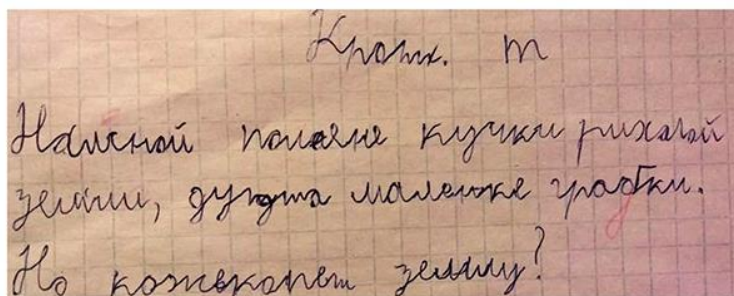 Кроты. т
Налисной поляне кучки рихлой
земли, дудта маленке гробки.
Но кожекопет землю?